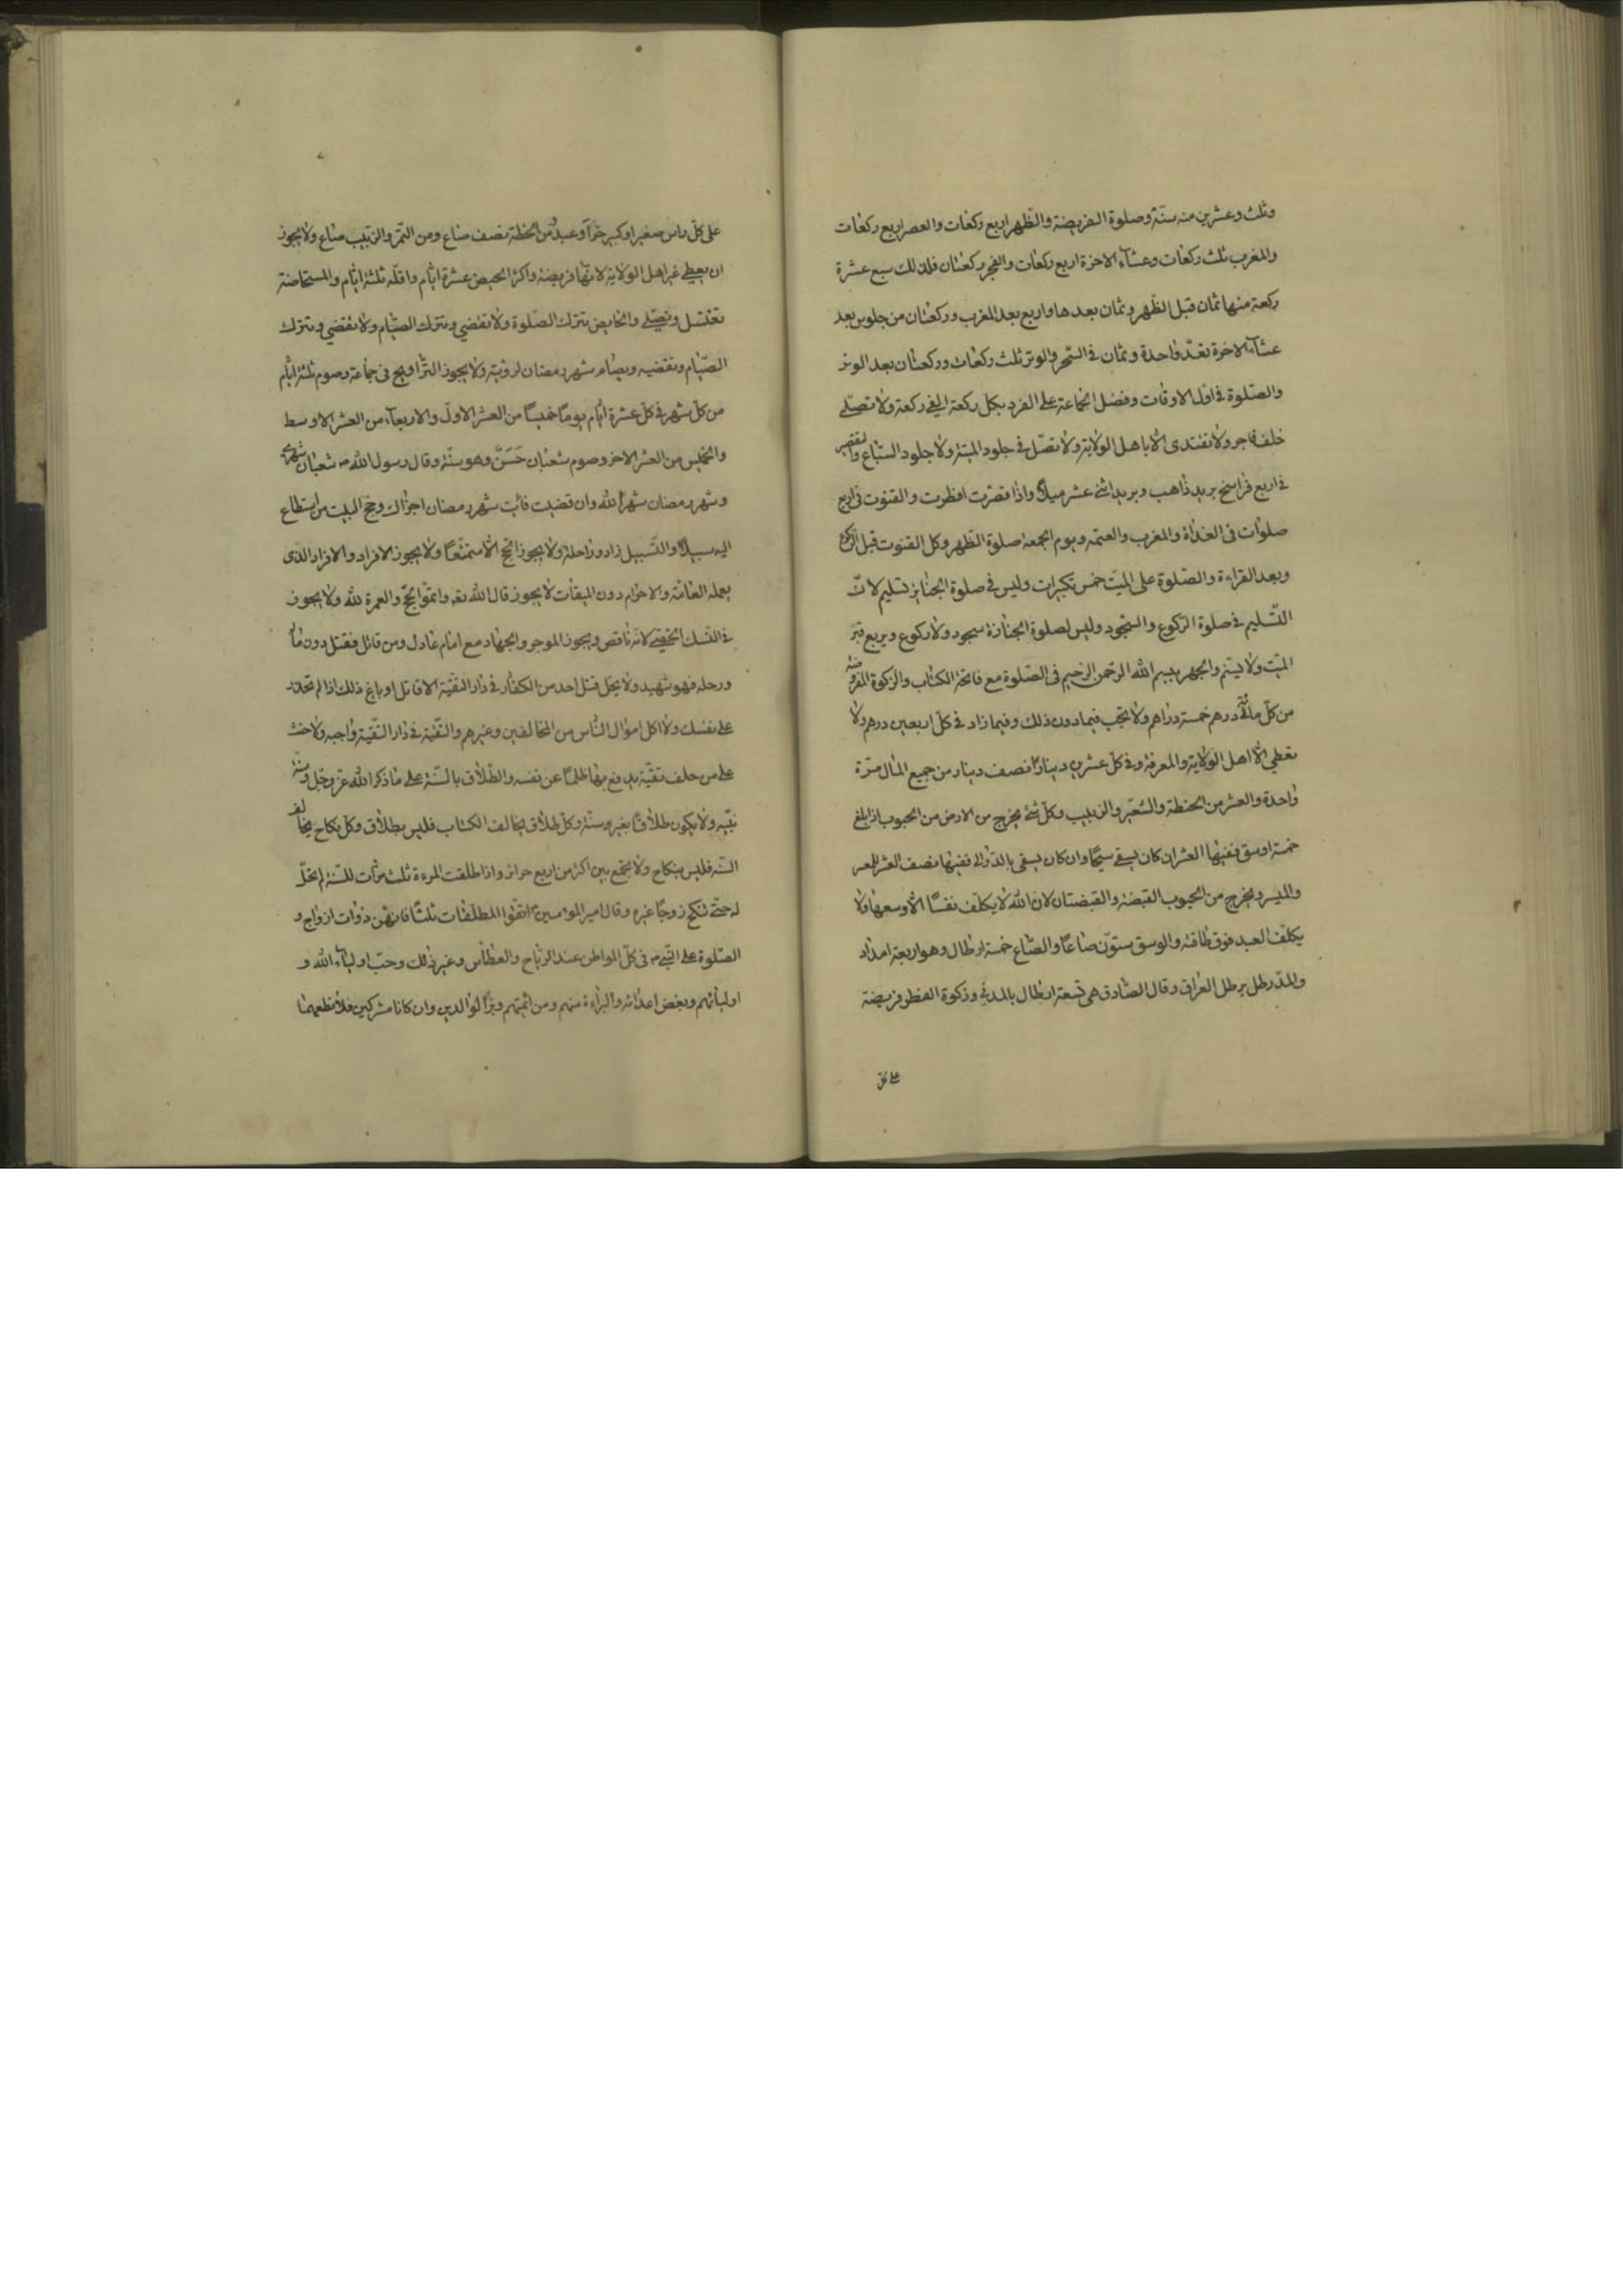 وثلث وعشرين منه سنّة وصلوة الفريضة والظّهر اربع ركعات والعصر اربع ركعات
والمغرب ثلث ركعات وعشآء الاخرة اربع ركعات والفجر ركعتان فذلك سبع عشرة
ركعة منها ثمان قبل الظّهر وثمان بعدها واربع بعد المغرب وركعتان من جلوس بعد
عشآء الاخرة تعدّ واحدة وثمان فى السّحر والوتر ثلث ركعات وركعتان بعد الوتر
والصّلوة فى اوّل الاوقات وفضل الجماعة على الفرد بكلّ ركعة الفى ركعة ولا تصلّى
خلف فاجر ولا تقتدى الّا باهل الولاية ولا تصلّ فى جلود الميتة ولا جلود السّباع والتقصير
فى اربع فراسخ بريد ذاهب وبريد اثنى عشر ميلاً واذا قصّرت افطرت والقنوت فى اربع
صلوات فى الغداة والمغرب والعتمه ويوم الجمعه صلوة الظّهر وكل القنوت قبل الرّكوع
وبعد القراءة والصّلوة على الميّت خمس تكبيرات وليس فى صلوة الجنايز تسليم لانّ
التّسليم فى صلوة الرّكوع والسّجود وليس لصلوة الجنازة سجود ولا ركوع ويربع قبر
الميّت ولا يسنّم والجهر ببسم الله الرّحمن الرّحيم فى الصّلوة مع فاتحة الكتاب والزّكوة المفروضة
من كلّ مأتى درهم خمسة دراهم ولا تجب فيما دون ذلك وفيما زاد فى كلّ اربعين درهم ولا
تعطى الّا اهل الولاية والمعرفة وفى كلّ عشرين ديناراً نصف دينار من جميع المال مرّة
واحدة والعشر من الحنطة والشّعير والزبيب وكلّ شئ يخرج من الارض من الحبوب اذا بلغ
خمسة اوسق ففيها العشر ان كان يسقى سيحًا وان كان يسقى بالدّوالى ففيها نصف العشر للمعسر
والميسر ويخرج من الحبوب القبضة والقبضتان لانّ الله لا يكلّف نفسًا الّا وسعها ولا
يكلّف العبد فوق طاقته والوسق ستّون صاعًا والصّاع خمسة ارطال وهو اربعة امداد
والمدّ رطل برطل العراقى وقال الصّادق هى تسعة ارطال بالمدنى وزكوة الفطر فريضة
على كلّ
على كلّ راس صغير او كبير حرّاً وعبد من الحنطة نصف صاع ومن التّمر والزّبيب صاع ولا يجوز
ان يعطى غير اهل الولاية لانّها فريضة واكثر الحيض عشرة ايّام واقلّه ثلثة ايّام والمستحاضة
تغتسل وتصلّى والحايض تترك الصّلوة ولا تقضى وتترك الصّيام ولا تقضى وتترك
الصّيام وتقضيه ويصام شهر رمضان لرؤيته ولا يجوز التّراويح فى جماعة وصوم ثلثة ايّام
من كلّ شهر فى كلّ عشرة ايّام يومًا خميسًا من العشر الاوّل والاربعآء من العشر الاوسط
والخميس من العشر الاخر وصوم شعبان حَسَنٌ وهو سنّة وقال رسول الله ص شعبان شهرى
وشهر رمضان شهر الله وان قضيت فائت شهر رمضان اجزاك وحجّ البيت من استطاع
اليه سبيلاً والسّبيل زاد وراحلة ولا يجوز الحجّ الّا متمتّعًا ولا يجوز الافراد والافراد الّذى
يعمله العامّة والاحرام دون الميقات لا يجوز قال الله تعه واتمّوا الحجّ والعمرة لله ولا يجوز
فى النّسك الخصى لانّه ناقص ويجوز الموجر والجهاد مع امام عادل ومن قاتل فقتل دون ماله
ورحله فهو شهيد ولا يحل قتل احد من الكفّار فى دار التّقيّة الّا قاتل او باغ ذلك اذا لم تحذر
على نفسك ولا اكل اموال النّاس من المخالفين وغيرهم والتّقيّة فى دار التّقيّة واجبه ولا حنث
على من حلف تقيّة يدفع بها ظلمًا عن نفسه والطّلاق بالسّنّة على ما ذكر الله عزّ وجلّ وسنّة
نبيّه ولا يكون طلاقًا بغير سنّة وكلّ طلاق يخالف الكتاب فليس بطلاق وكلّ نكاح يخالف
السّنّه فليس بنكاح ولا يجمع بين اكثر من اربع حراير واذا طلقت المرءة ثلث مرّات للسّنّة لم تحلّ
له حتّى تنكح زوجًا غيره وقال امير المؤمنين ع اتّقوا المطلّقات ثلثًا فانّهنّ ذوات ازواج و
الصّلوة على النّبىّ ص فى كلّ المواطن عند الرّياح والعطّاس وغير ذلك وحبّ اوليآء الله و
اوليائهم وبغض اعدائه والبراءة منهم ومن ائمّتهم وبرّ الوالدين وان كانا مشركين فلا تطعهما